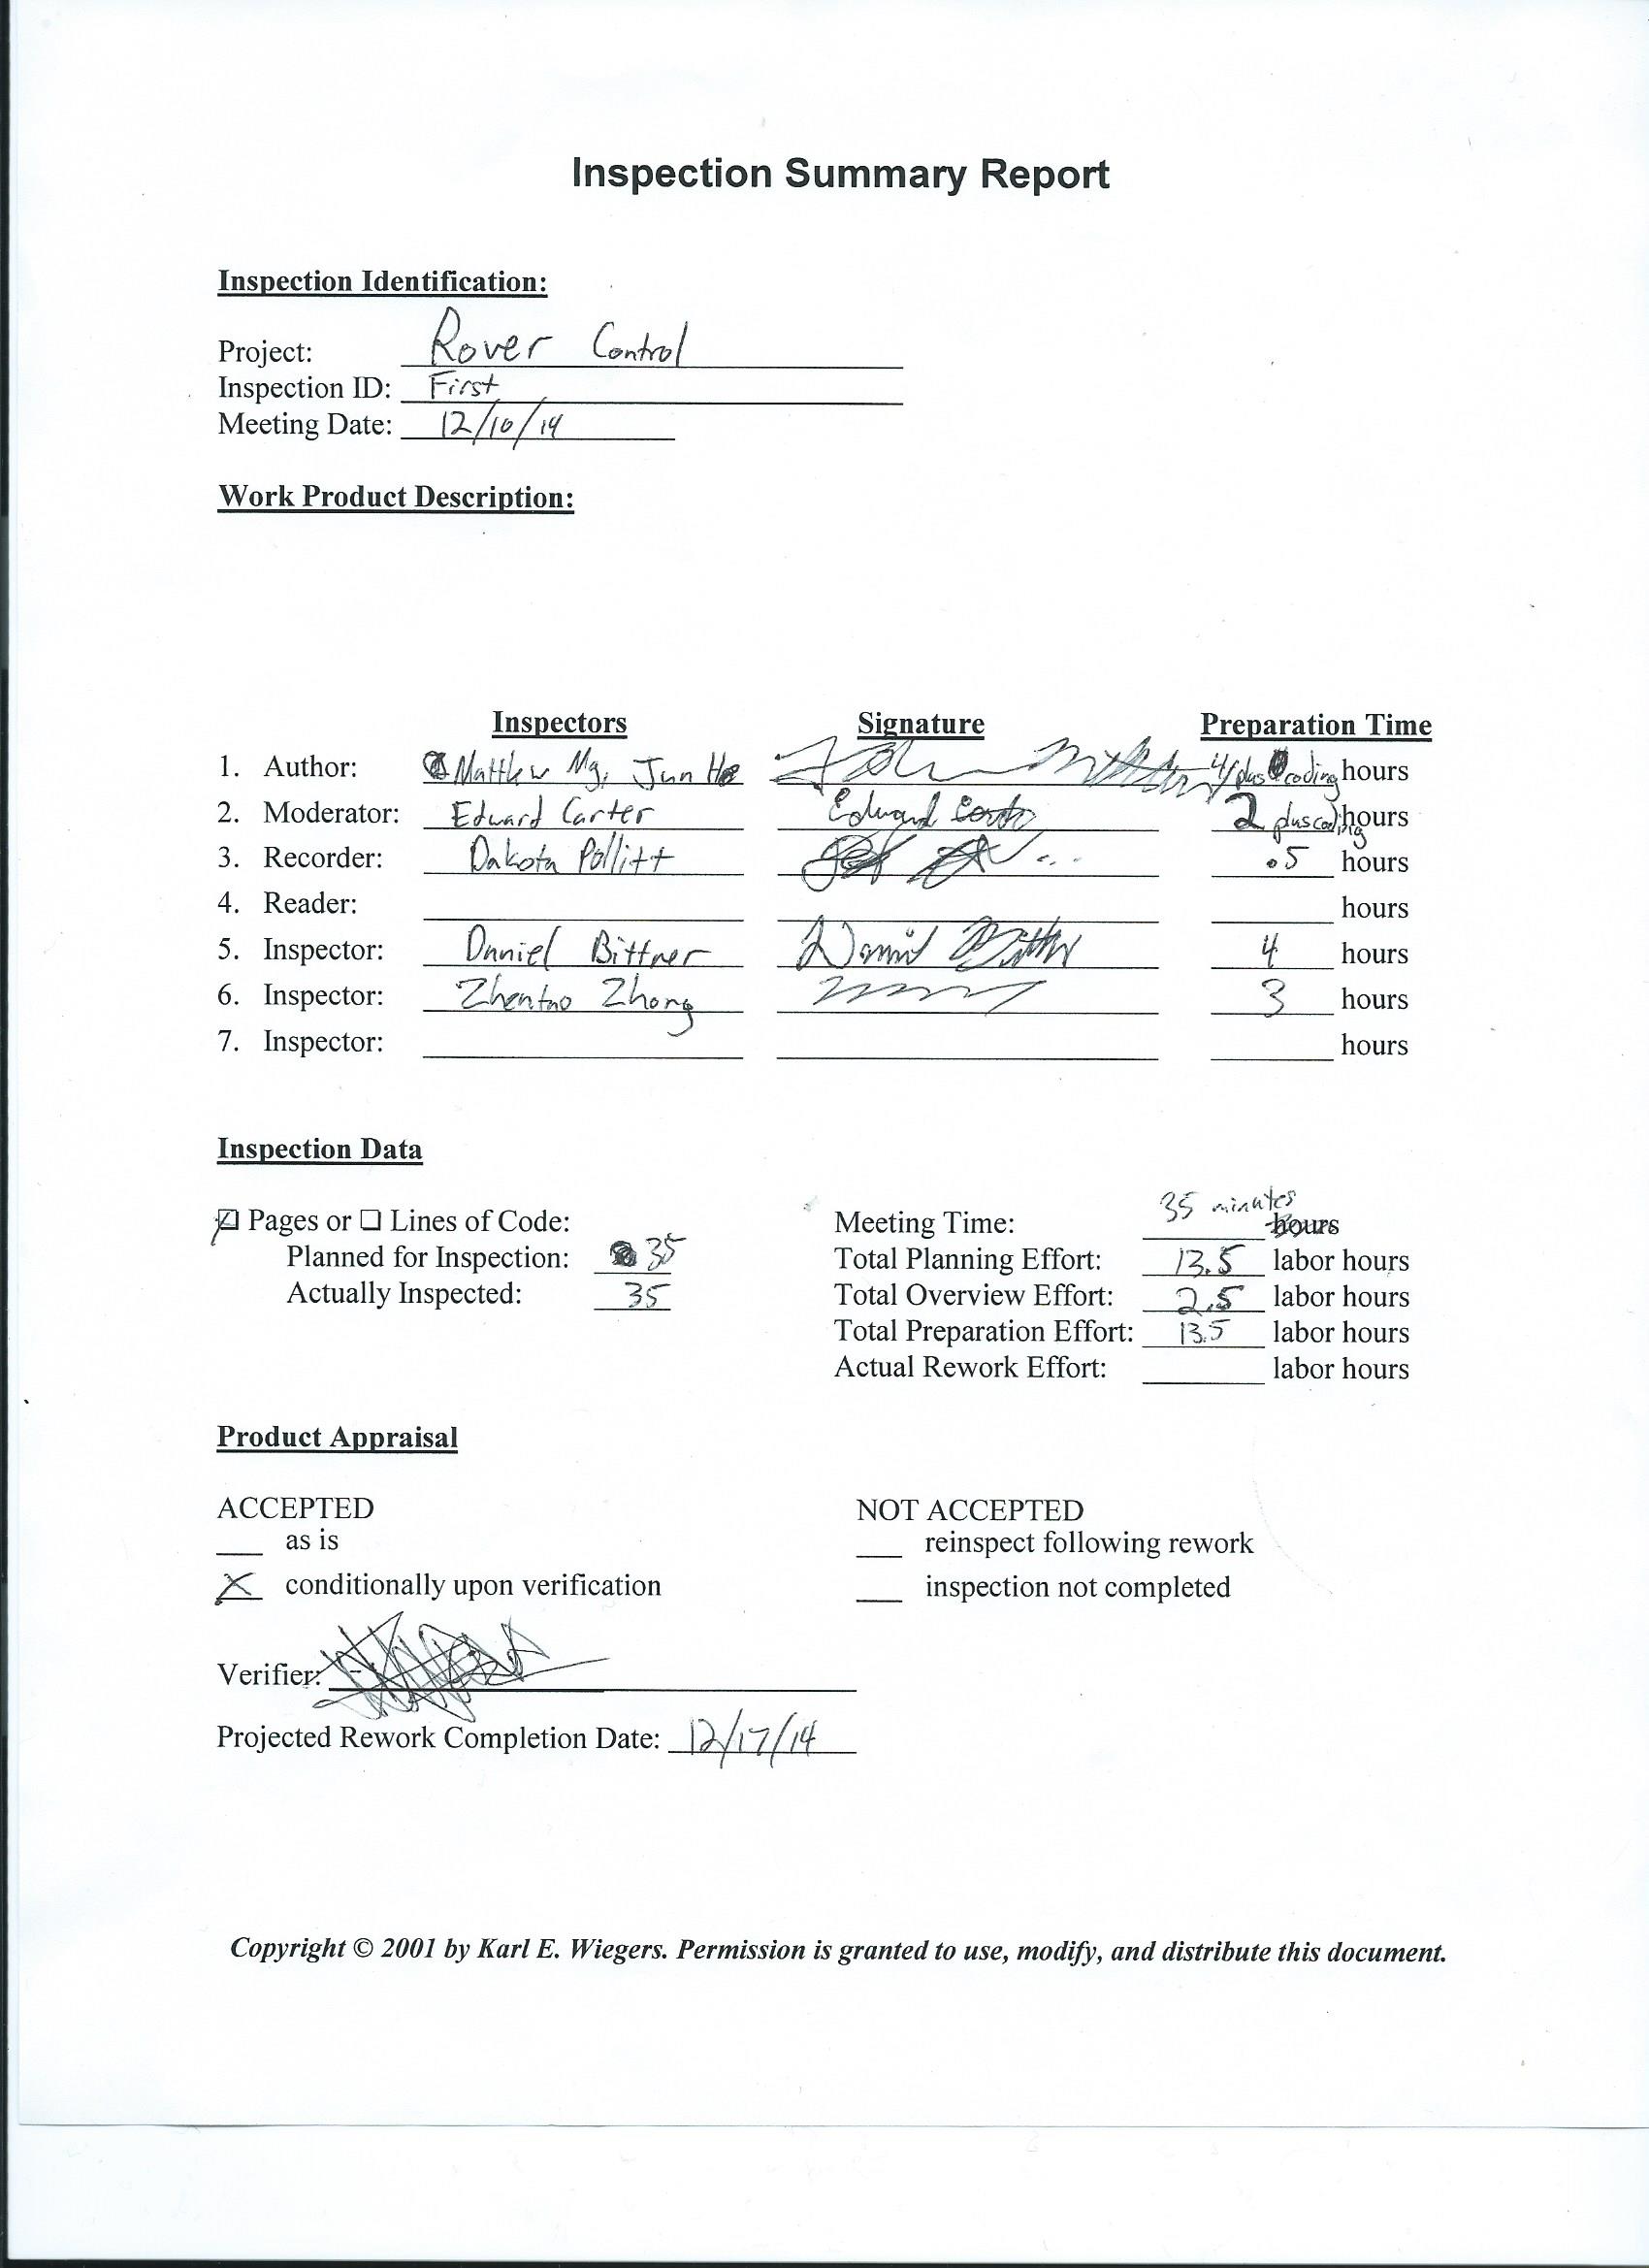 Inspection Summary Report
Inspection Identification:
Project: Rover Control
Inspection ID: First
Meeting Date: 12/10/14
Work Product Description:
Inspectors Signature Preparation Time
1. Author: Matthew Mg, Jun He 4 plus coding hours
2. Moderator: Edward Carter Edward Carter 2 plus coding hours
3. Recorder: Dakota Pollitt .5 hours
4. Reader: hours
5. Inspector: Daniel Bittner Daniel Bittner 4 hours
6. Inspector: Zhentao Zhong 3 hours
7. Inspector: hours
Inspection Data
Pages or Lines of Code:
Planned for Inspection: 35
Actually Inspected: 35
Meeting Time: 35 minutes hours
Total Planning Effort: 13.5 labor hours
Total Overview Effort: 2.5 labor hours
Total Preparation Effort: 13.5 labor hours
Actual Rework Effort: labor hours
Product Appraisal
ACCEPTED
as is
X conditionally upon verification
NOT ACCEPTED
reinspect following rework
inspection not completed
Verifier:
Projected Rework Completion Date: 12/17/14
Copyright © 2001 by Karl E. Wiegers. Permission is granted to use, modify, and distribute this document.